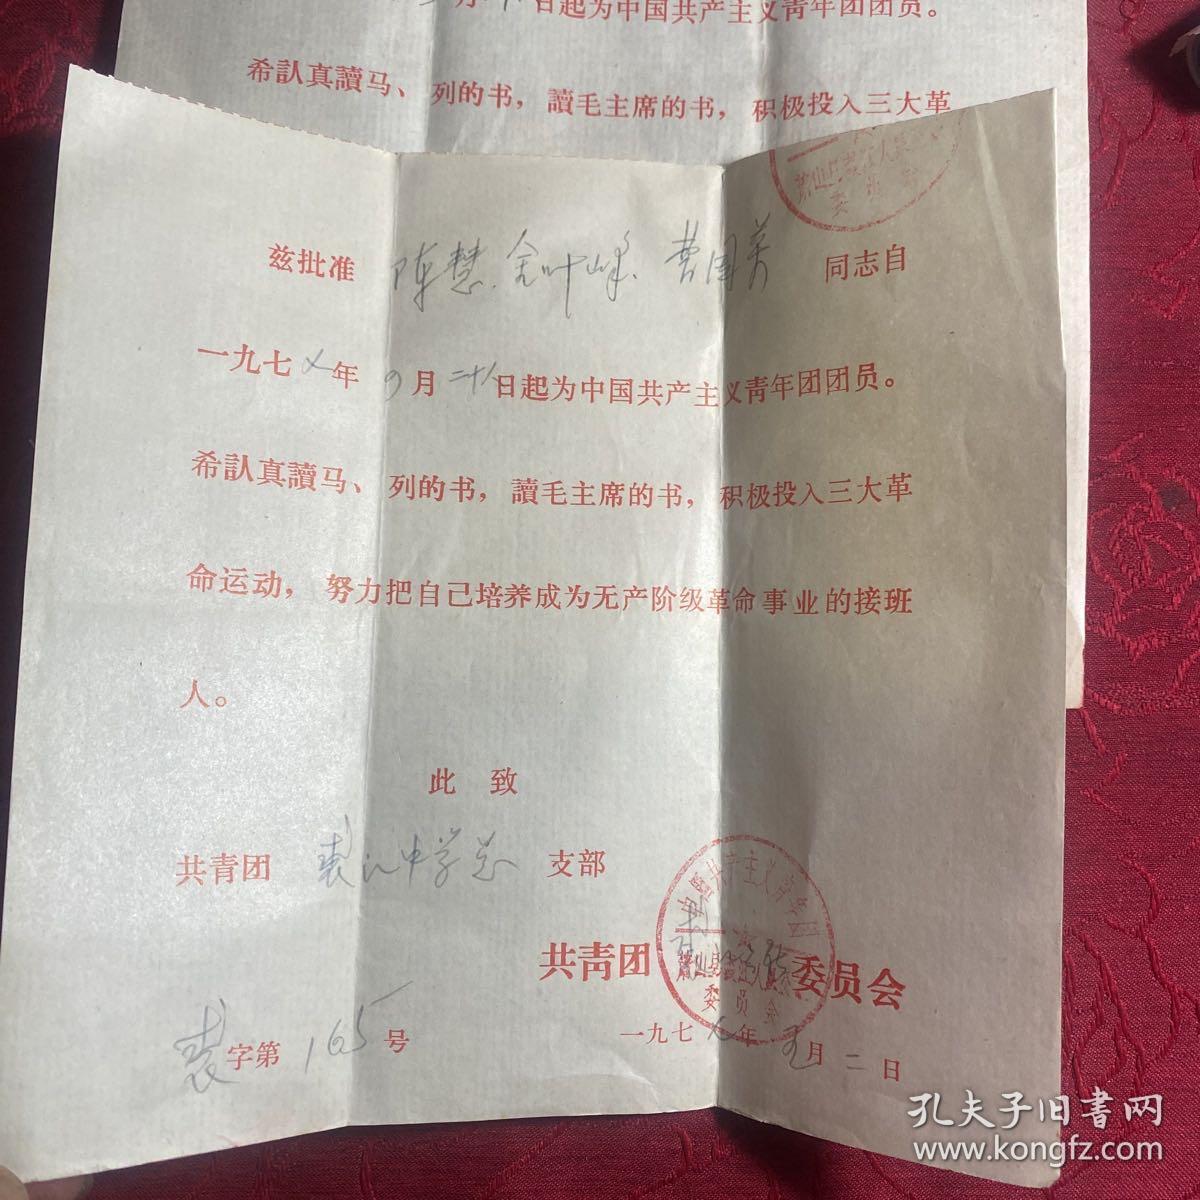 日起为中国共产主义青年团团员。
希認真讀马、列的书，讀毛主席的书，积极投入三大革
委员会
兹批准 陈慧、金叶峰、曹国美 同志自
一九七 年 月二十八日起为中国共产主义青年团团员。
希認真讀马、列的书，讀毛主席的书，积极投入三大革
命运动，努力把自己培养成为无产阶级革命事业的接班
人。
此致
共青团 裘江中学总 支部
共青团 委员会
中国共产主义青年团
萧山县裘江人民公社
委员会
裘字第165号
一九七 年五月二日
孔夫子旧书网
www.kongfz.com